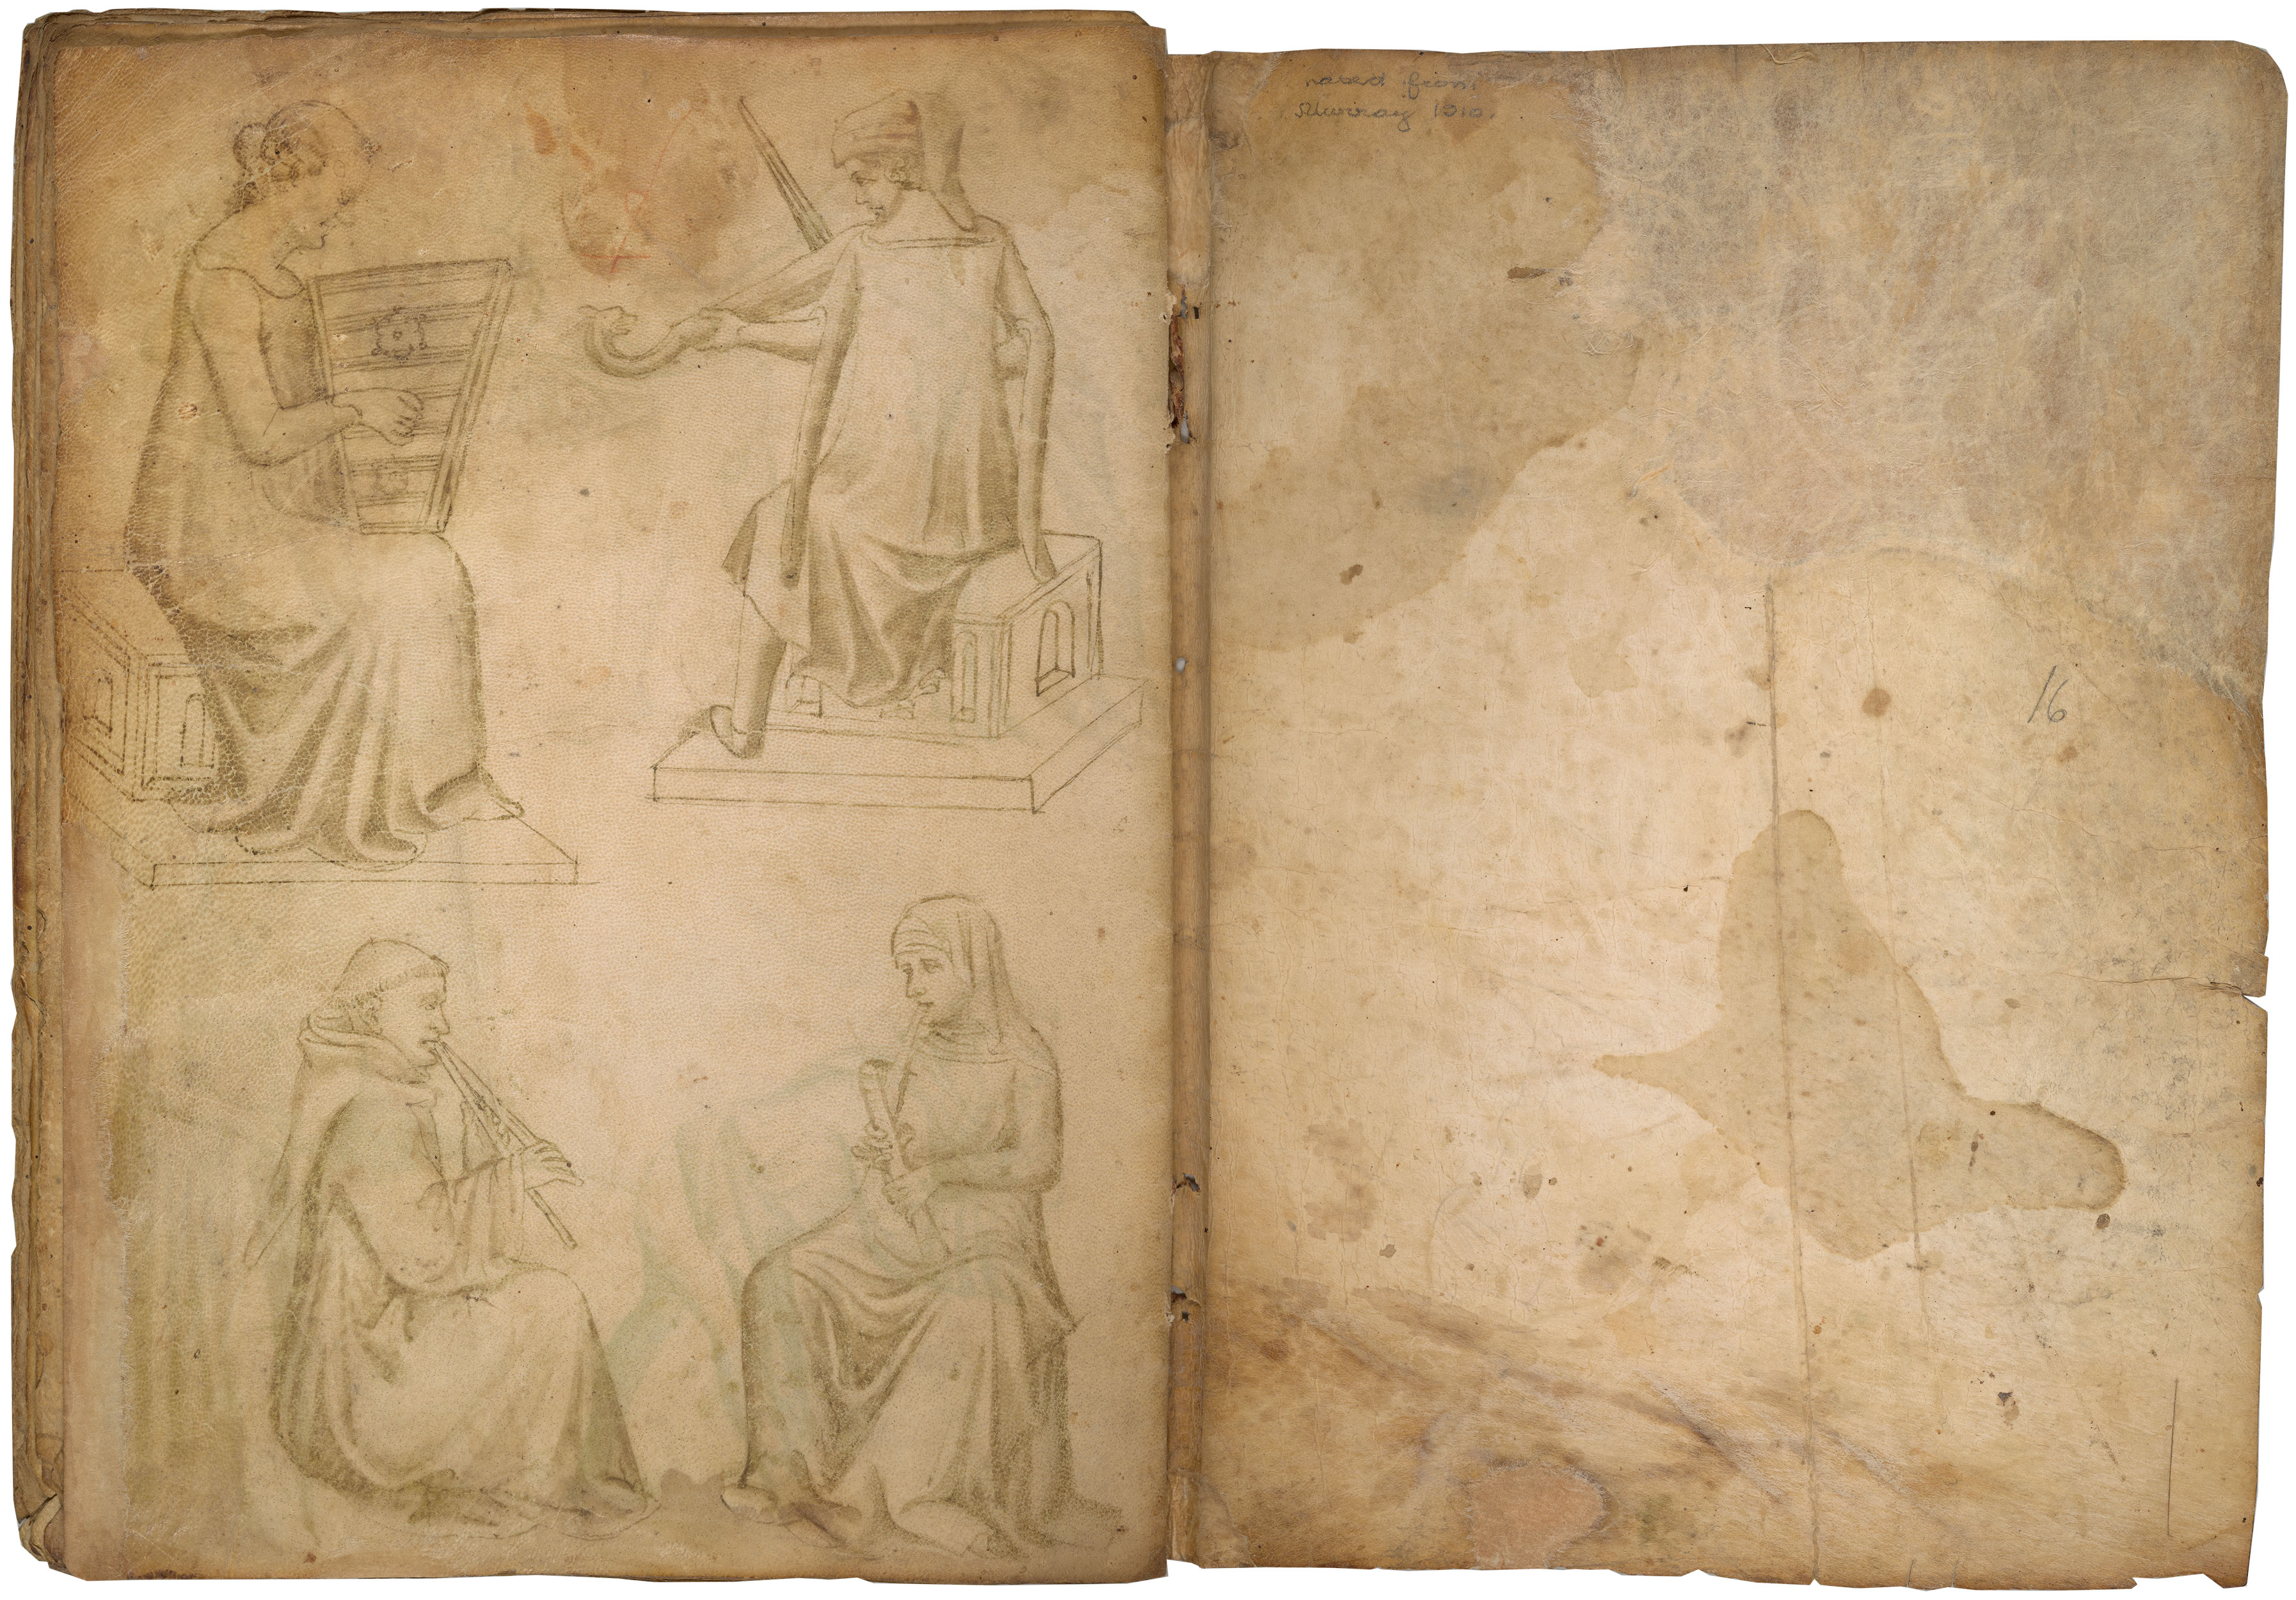 from
Murray 1910.
16